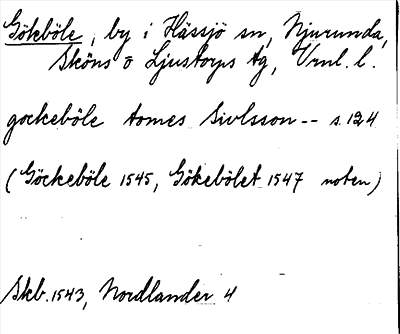 Gökböle, by i Hässjö sn, Njurunda,
Sköns o Ljustorps tg, Vrnl. l.
gockeböle tomes Sivlsson -- s. 124
(Göckeböle 1545, Gökebölet 1547 noten)
Skb. 1543, Nordlander 4